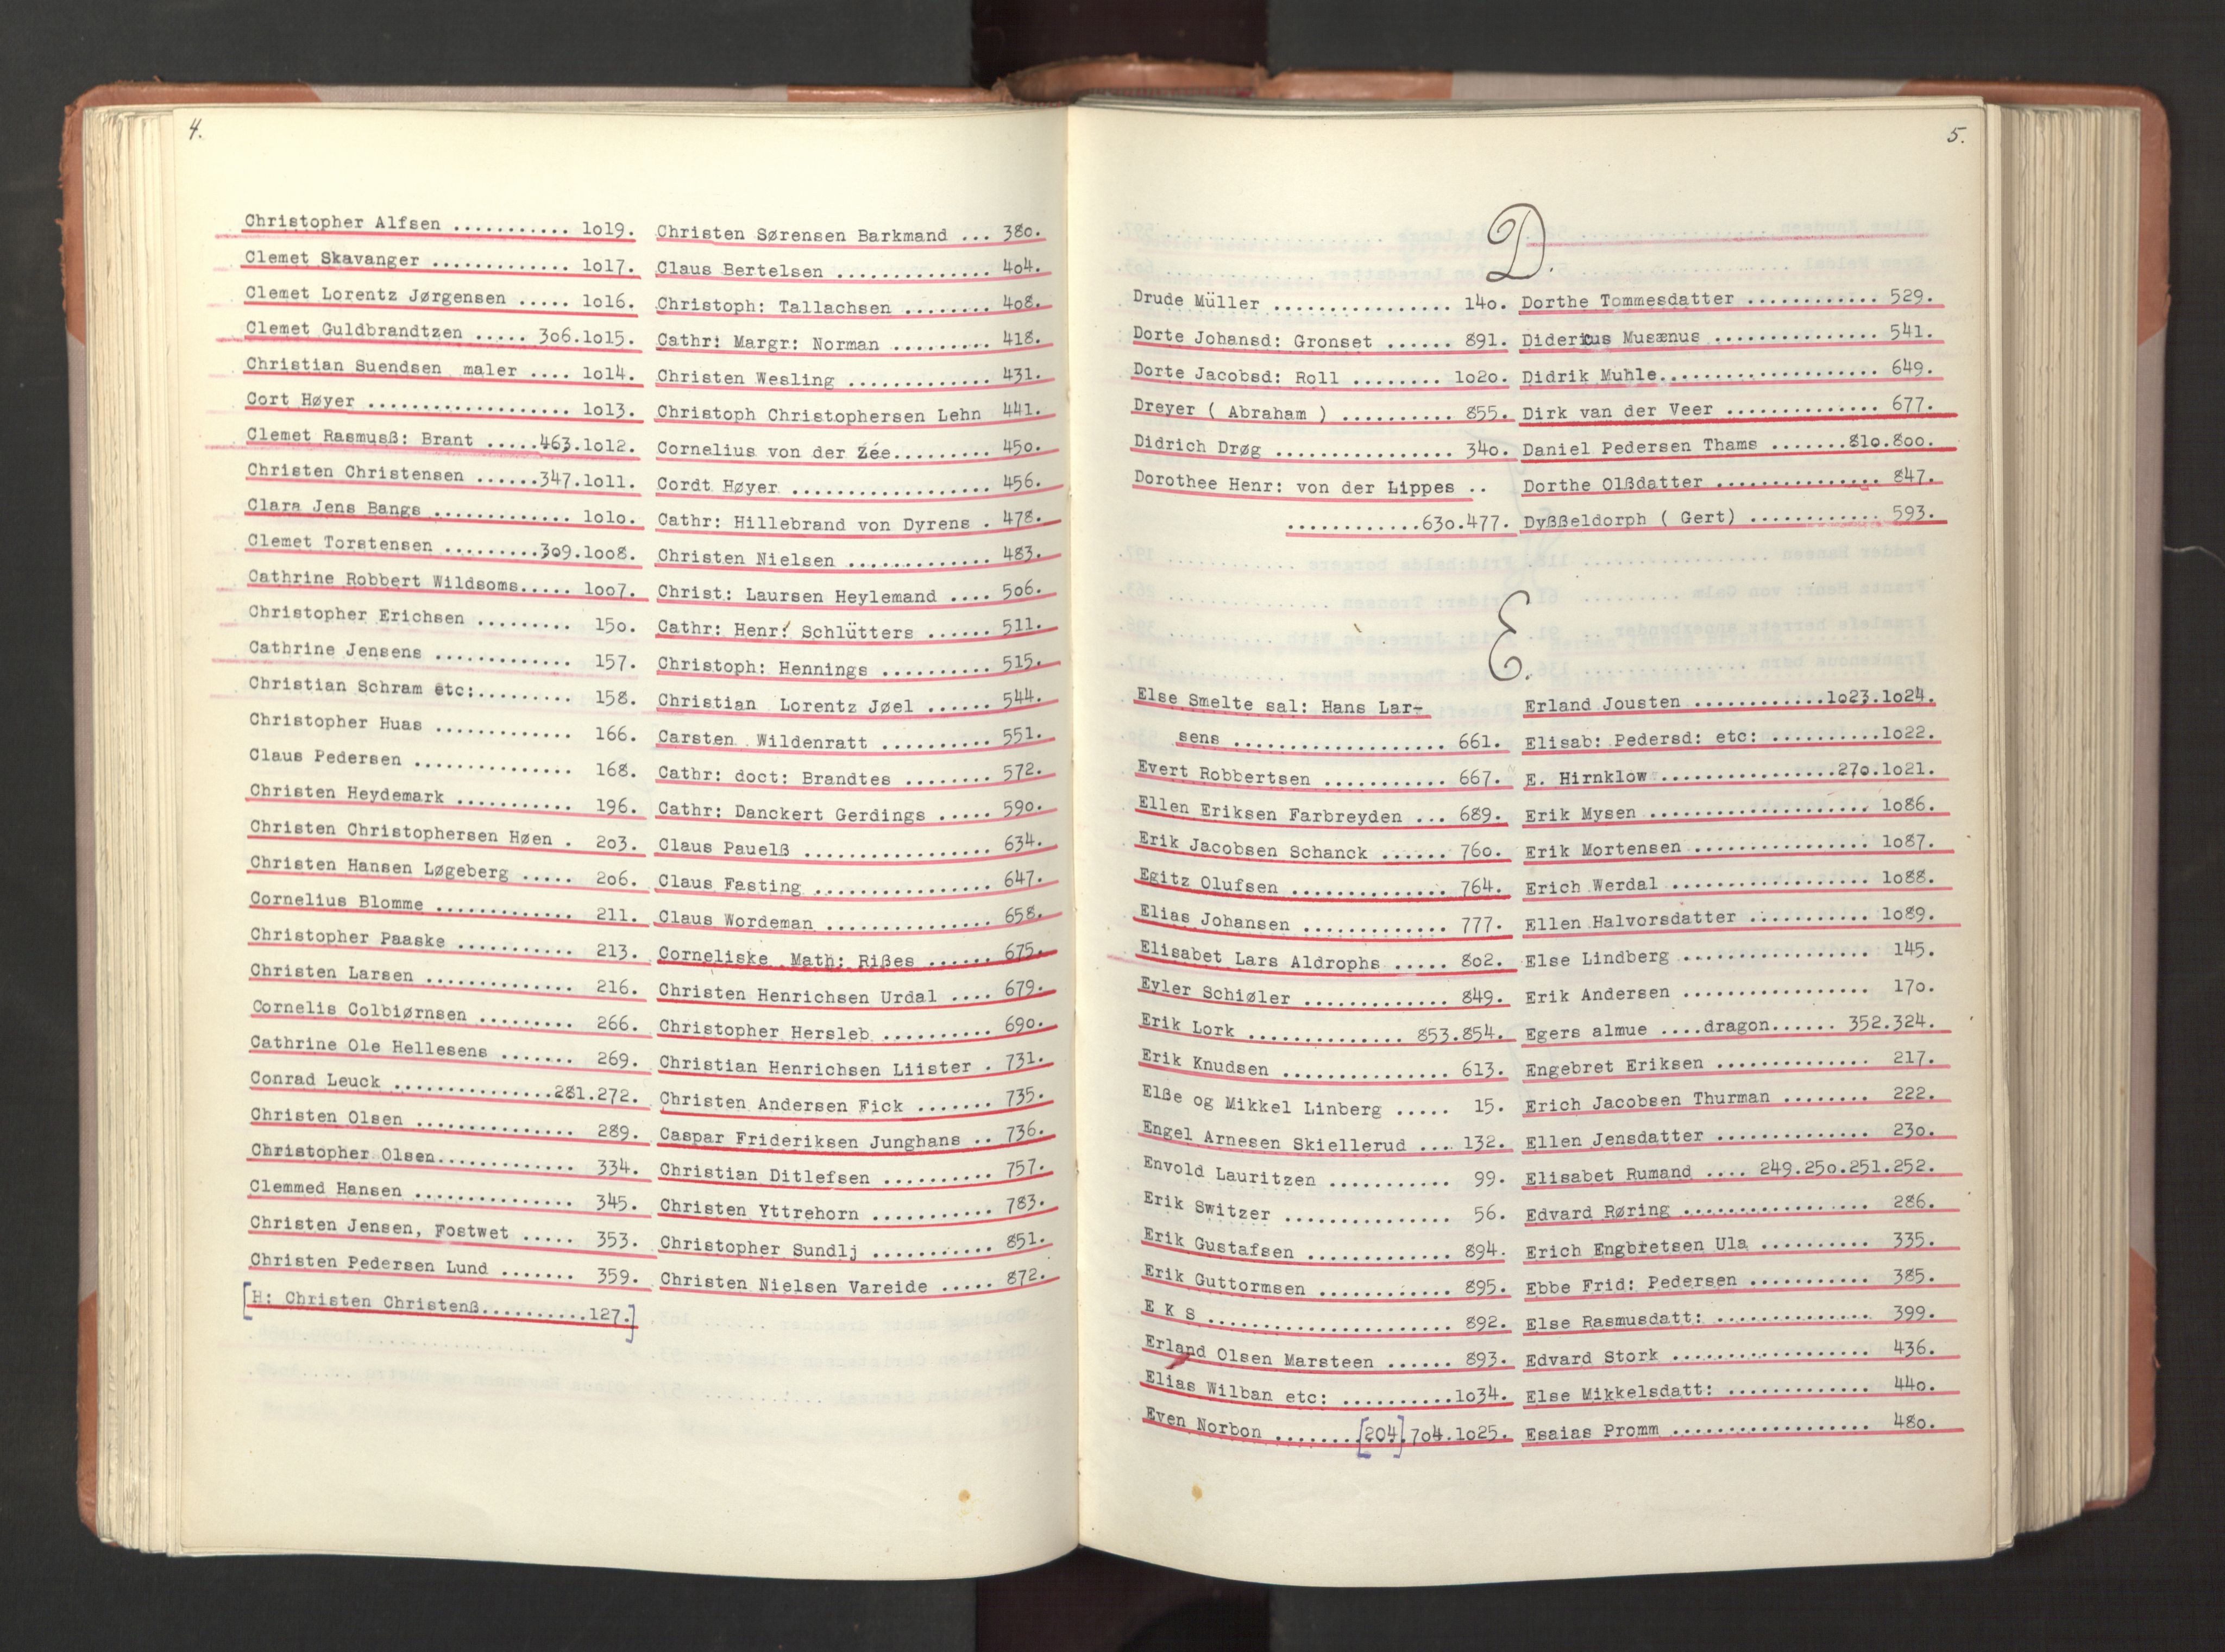 4.
Christopher Alfsen ........... 1o19.
Clemet Skavanger ............. 1o17.
Clemet Lorentz Jørgensen ..... 1o16.
Clemet Guldbrandtzen ..... 3o6.1o15.
Christian Suendsen maler .... 1o14.
Cort Høyer ................... 1o13.
Clemet Rasmusß: Brant .....463.1o12.
Christen Christensen ......347.1o11.
Clara Jens Bangs ............. 1o1o.
Clemet Torstensen .........3o9.1oo8.
Cathrine Robbert Wildsoms..... 1oo7.
Christopher Erichsen ......... 15o.
Cathrine Jensens ............. 157.
Christian Schram etc:......... 158.
Christopher Huas ............. 166.
Claus Pedersen ............... 168.
Christen Heydemark ........... 196.
Christen Christophersen Høen . 2o3.
Christen Hansen Løgeberg ..... 2o6.
Cornelius Blomme ............. 211.
Christopher Paaske ........... 213.
Christen Larsen .............. 216.
Cornelis Colbiørnsen ......... 266.
Cathrine Ole Hellesens ....... 269.
Conrad Leuck ..............281.272.
Christen Olsen ............... 289.
Christopher Olsen............. 334.
Clemmed Hansen ............... 345.
Christen Jensen, Fostwet ..... 353.
Christen Pedersen Lund ....... 359.
[H: Christen Christenß..........127.]
Christen Sørensen Barkmand ... 38o.
Claus Bertelsen .............. 4o4.
Christoph: Tallachsen ........ 4o8.
Cathr: Margr: Norman ......... 418.
Christen Wesling ............. 431.
Christoph Christophersen Lehn 441.
Cornelius von der Zée......... 45o.
Cordt Høyer .................. 456.
Cathr: Hillebrand von Dyrens . 478.
Christen Nielsen ............. 483.
Christ: Laursen Heylemand .... 5o6.
Cathr: Henr: Schlütters ...... 511.
Christoph: Hennings .......... 515.
Christian Lorentz Jøel ...... 544.
Carsten Wildenratt .......... 551.
Cathr: doct: Brandtes ........ 572.
Cathr: Danckert Gerdings ..... 59o.
Claus Pauelß ................. 634.
Claus Fasting ................ 647.
Claus Wordeman ............... 658.
Corneliske Math: Rißes ...... 675.
Christen Henrichsen Urdal .... 679.
Christopher Hersleb .......... 69o.
Christian Henrichsen Liister . 731.
Christen Andersen Fick ....... 735.
Caspar Frideriksen Junghans .. 736.
Christian Ditlefsen .......... 757.
Christen Yttrehorn ........... 783.
Christopher Sundlj ........... 851.
Christen Nielsen Vareide ..... 872.
5.
D.
Drude Müller ................ 14o.
Dorte Johansd: Gronset ...... 891.
Dorte Jacobsd: Roll ........ 1o2o.
Dreyer ( Abraham ) .......... 855.
Didrich Drøg ................ 34o.
Dorothee Henr: von der Lippes ..
............63o.477.
Dorthe Tommesdatter ............ 529.
Didericus Musænus ............... 541.
Didrik Muhle.................... 649.
Dirk van der Veer .............. 677.
Daniel Pedersen Thams .......81o.8oo.
Dorthe Olßdatter ............... 847.
Dyßßeldorph ( Gert) ............ 593.
E.
Else Smelte sal: Hans Lar-
sens ................... 661.
Evert Robbertsen ........... 667.
Ellen Eriksen Farbreyden ... 689.
Erik Jacobsen Schanck ...... 76o.
Egitz Olufsen .............. 764.
Elias Johansen ............. 777.
Elisabet Lars Aldrophs ..... 8o2.
Eyler Schiøler ............. 849.
Erik Lork .............. 853.854.
Erik Knudsen ............... 613.
Elße og Mikkel Linberg ..... 15.
Engel Arnesen Skiellerud ... 132.
Envold Lauritzen ........... 99.
Erik Switzer ............... 56.
Erik Gustafsen ............. 894.
Erik Guttormsen ............ 895.
E K S ...................... 892.
Erland Olsen Marsteen ...... 893.
Elias Wilban etc: ..........1o34.
Even Norbon .......[204].7o4.1o25.
Erland Jousten ............1o23.1o24.
Elisab: Pedersd: etc: ...........1o22.
E. Hirnklow................27o.1o21.
Erik Mysen .................... 1o86.
Erik Mortensen ................ 1o87.
Erich Werdal .................. 1o88.
Ellen Halvorsdatter ........... 1o89.
Else Lindberg ................. 145.
Erik Andersen ................. 17o.
Egers almue ....dragon...... 352.324.
Engebret Eriksen .............. 217.
Erich Jacobsen Thurman ........ 222.
Ellen Jensdatter .............. 23o.
Elisabet Rumand .... 249.25o.251.252.
Edvard Røring ................. 286.
Erich Engbretsen Ula .......... 335.
Ebbe Frid: Pedersen ........... 385.
Else Rasmusdatt: .............. 399.
Edvard Stork .................. 436.
Else Mikkelsdatt: ............. 44o.
Esaias Promm .................. 48o.